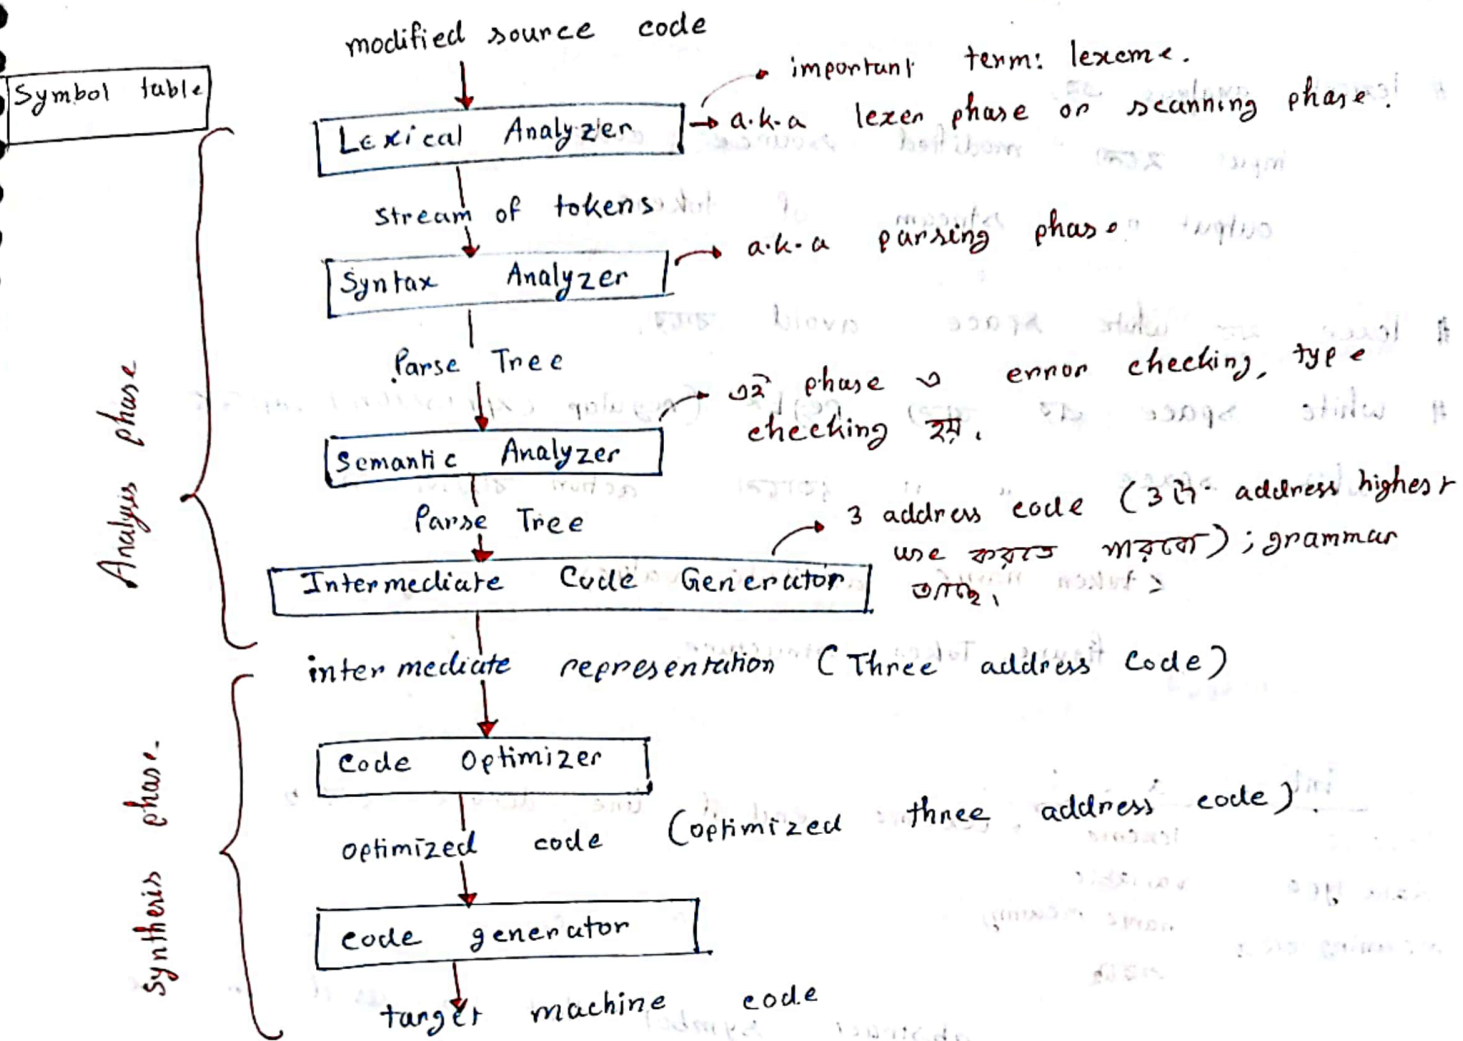 modified source code
Symbol table
important term: lexeme.
Lexical Analyzer
a.k.a lexer phase or scanning phase.
stream of tokens
a.k.a parsing phase
Syntax Analyzer
Parse Tree
এই phase এ error checking, type
checking হয়.
Semantic Analyzer
Parse Tree
3 address code (3টা address highest
use করতে পারবো); grammar
আছে.
Intermediate Code Generator
Analysis phase
intermediate representation (Three address code)
Code Optimizer
optimized code (optimized three address code).
Code generator
Synthesis phase.
target machine code